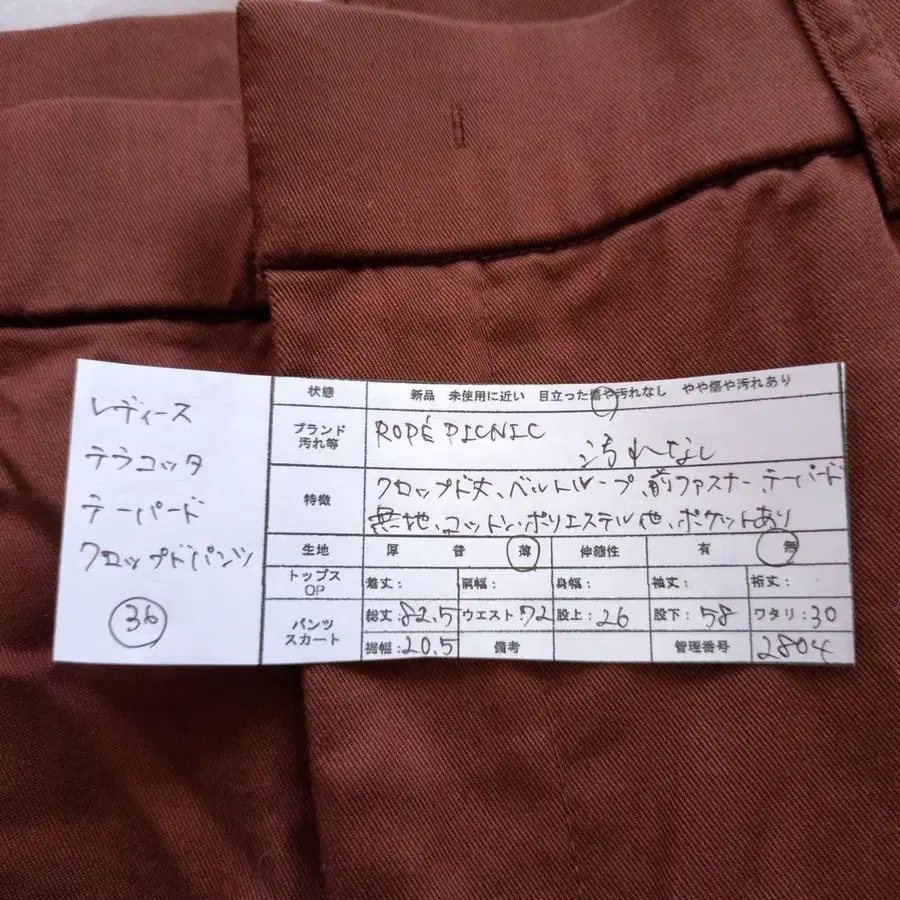 レディース
テラコッタ
テーパード
クロップドパンツ
36
状態 新品 未使用に近い 目立った傷や汚れなし やや傷や汚れあり
ブランド 汚れ等 ROPÉ PICNIC
汚れなし
特徴 クロップド丈、ベルトループ、前ファスナー、テーパード
無地、コットン、ポリエステル他、ポケットあり
生地 厚 普 薄 伸縮性 有 無
トップス OP 着丈: 肩幅: 身幅: 袖丈: 裄丈:
パンツ スカート 総丈:82.5 ウエスト:72 股上:26 股下:58 ワタリ:30
裾幅:20.5 備考 管理番号 2804